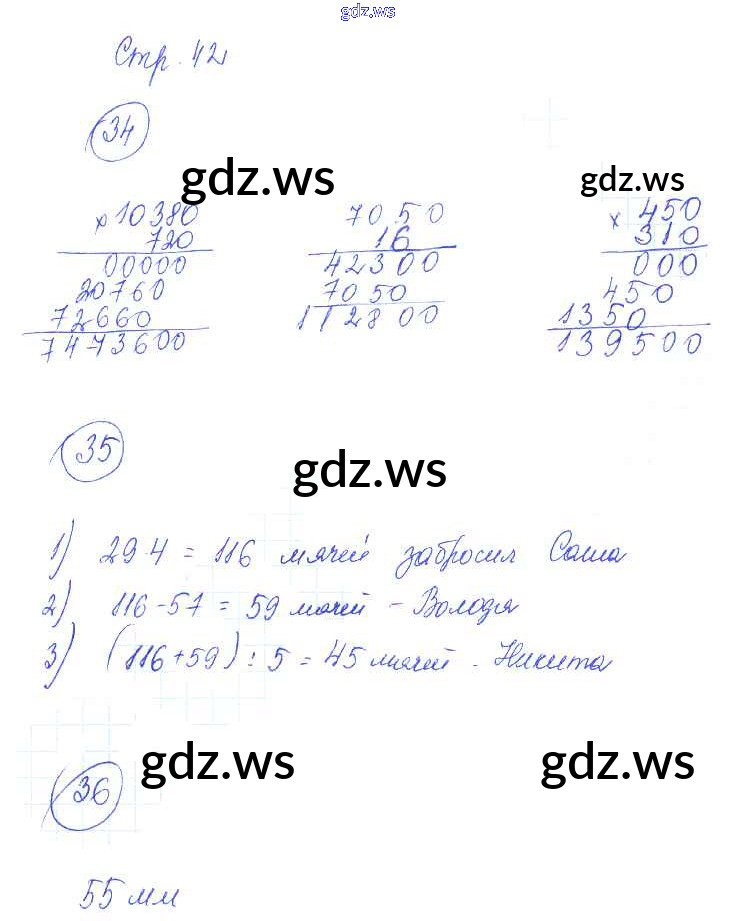 gdz.ws
Стр. 42
34
gdz.ws gdz.ws
× 10380 7050 × 450
720 16 310
00000 42300 000
20760 7050 450
72660 112800 1350
7473600 139500
35
gdz.ws
1) 29·4 = 116 мячей забросил Саша
2) 116-57 = 59 мячей - Володя
3) (116+59) : 5 = 45 мячей - Никита
gdz.ws gdz.ws
36
55 мм